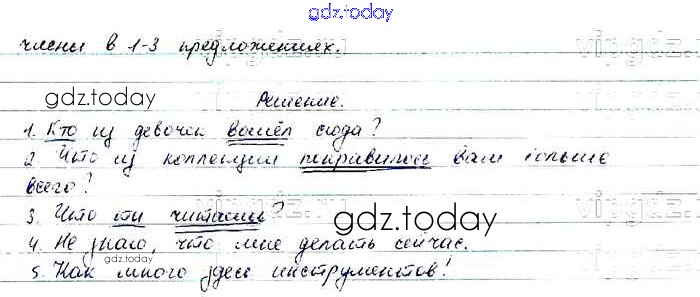 gdz.today
члены в 1-3 предложениях.
gdz.today
Решение.
1. Кто из девочек вошёл сюда?
2. Что из коллекции понравилось вам больше
всего?
3. Что ты читаешь?
gdz.today
4. Не знаю, что мне делать сейчас.
gdz.today
5. Как много здесь инструментов!